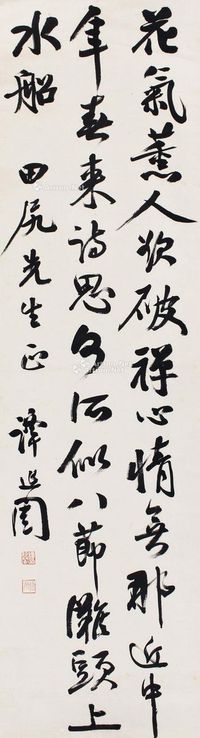 花氣薰人欲破禪心情無那近中
年春來詩思何似八節灘頭上
水船 田尻先生正 譚延闓